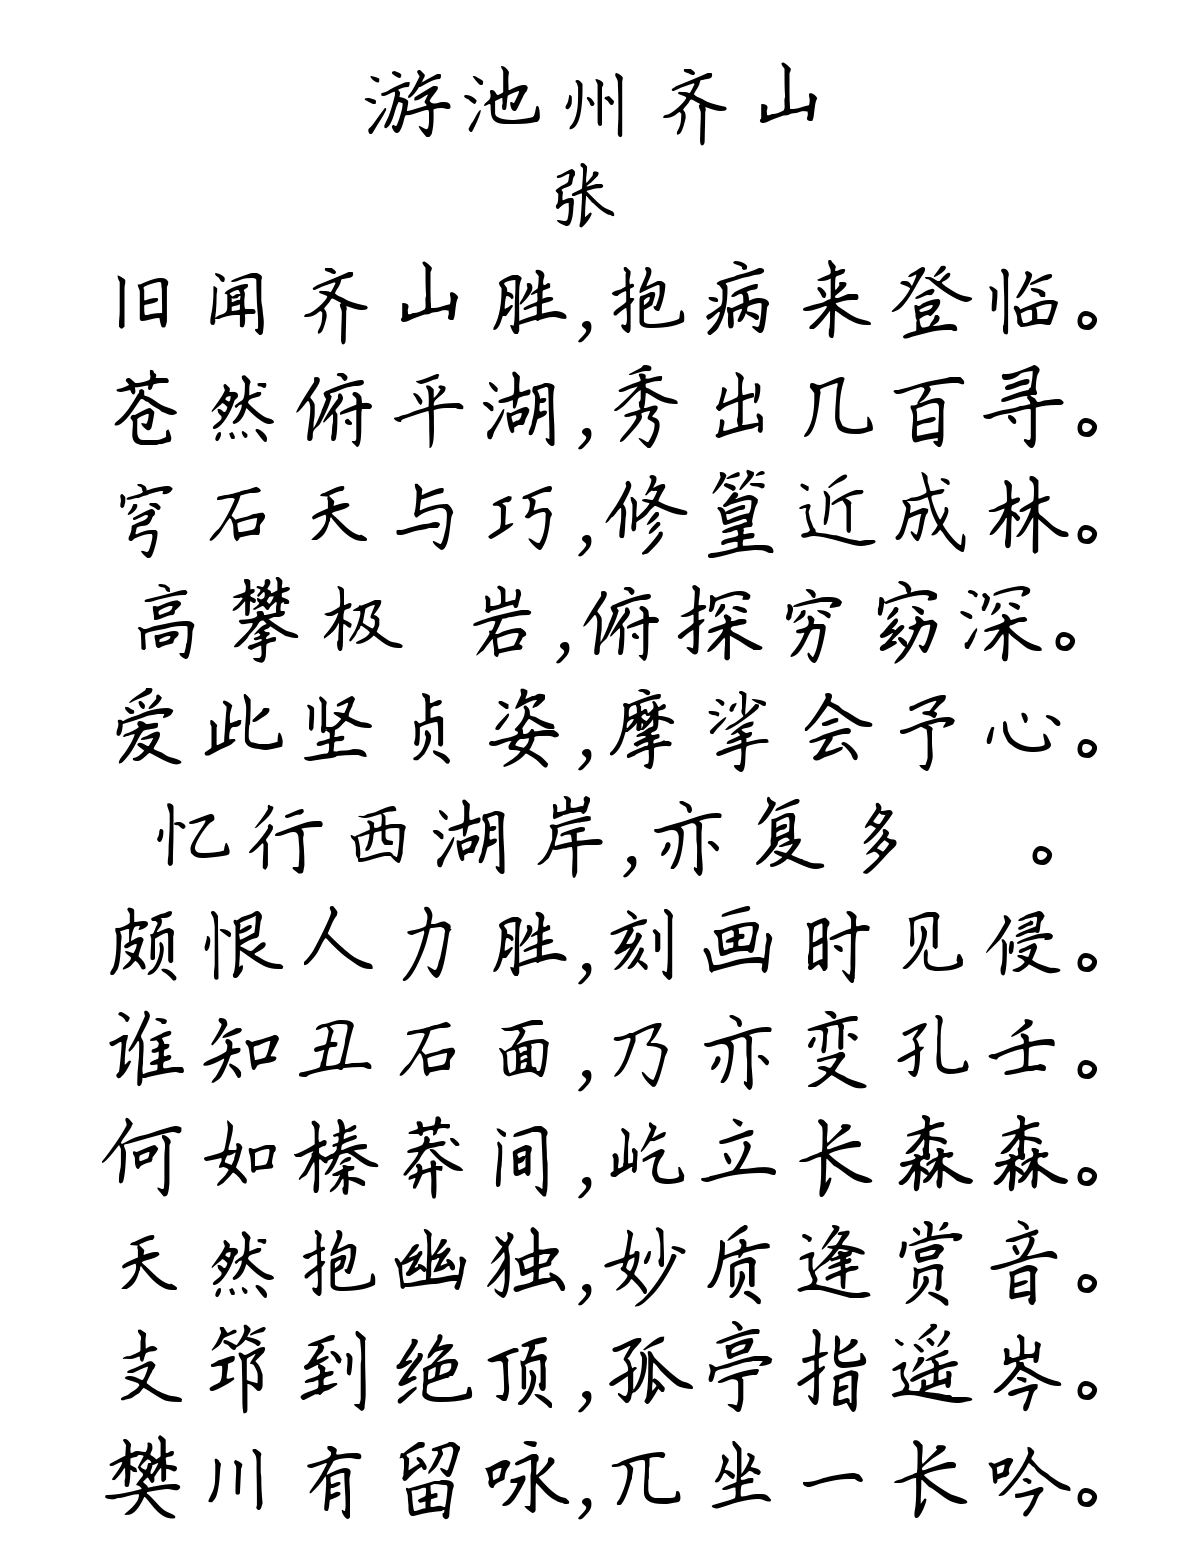 游池州齐山
张
旧闻齐山胜,抱病来登临。
苍然俯平湖,秀出几百寻。
穹石天与巧,修篁近成林。
高攀极 岩,俯探穷窈深。
爱此坚贞姿,摩挲会予心。
忆行西湖岸,亦复多 。
颇恨人力胜,刻画时见侵。
谁知丑石面,乃亦变孔壬。
何如榛莽间,屹立长森森。
天然抱幽独,妙质逢赏音。
支筇到绝顶,孤亭指遥岑。
樊川有留咏,兀坐一长吟。